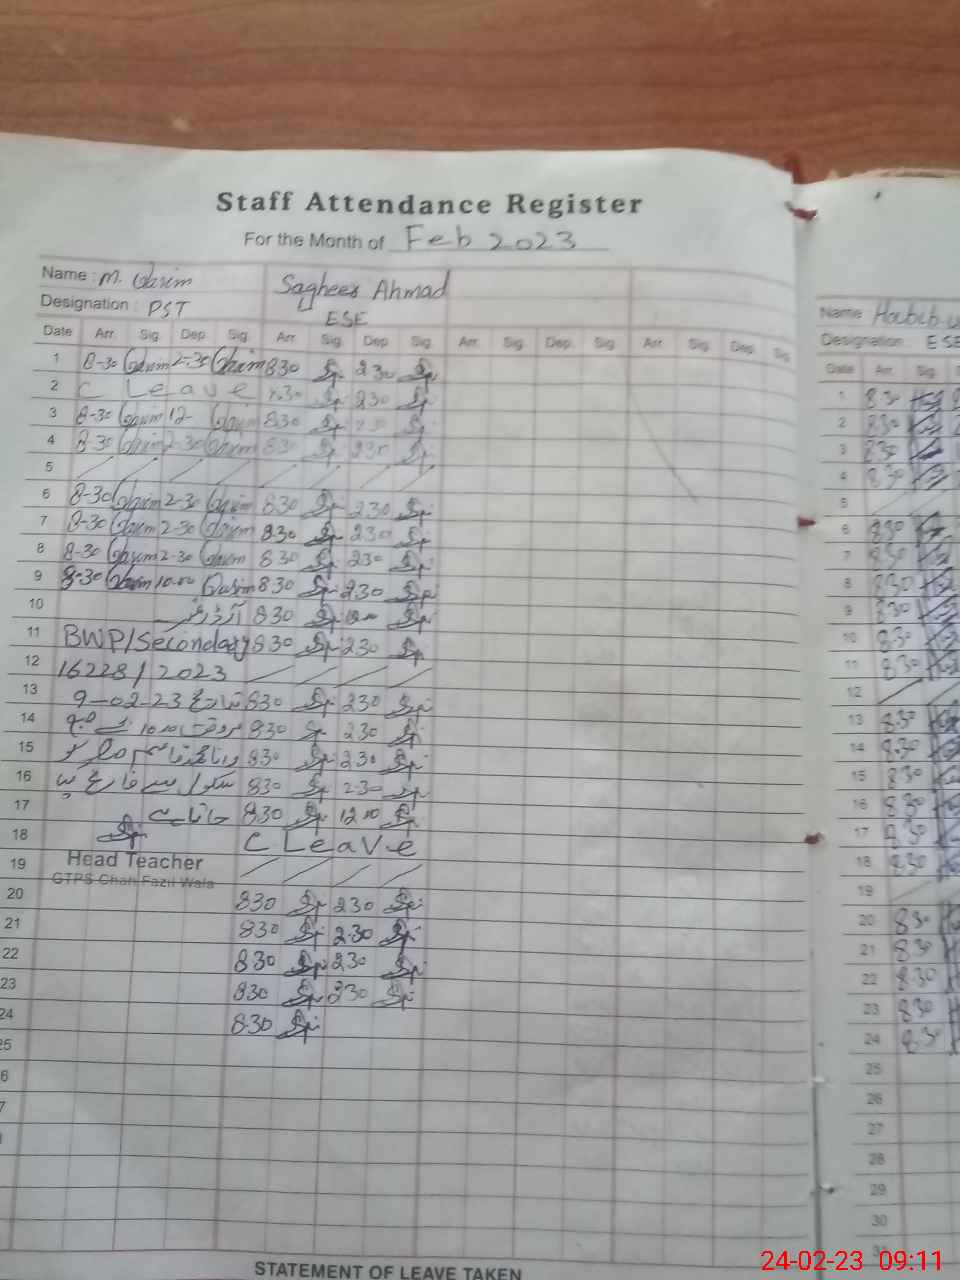 Staff Attendance Register
For the Month of Feb 2023
Name : M. Qasim Sagheer Ahmad
Designation : PST ESE
Date Arr. Sig. Dep. Sig. Arr. Sig. Dep. Sig. Arr. Sig. Dep. Sig. Arr. Sig. Dep. Sig.
1 8-30 Qasim 2-30 Qasim 830 230
2 C Leave 8.30 230
3 8-30 Qasim 12- Qasim 830 230
4 8-30 Qasim 2-30 Qasim 830 230
5
6 8-30 Qasim 2-30 Qasim 830 230
7 8-30 Qasim 2-30 Qasim 830 230
8 8-30 Qasim 2-30 Qasim 830 230
9 8-30 Qasim 10.00 Qasim 830 230
10 830 1200
11 BWP/Secondary 830 230
12 16228 / 2023
13 9-02-23 بتاریخ 830 230
14 830 230
15 830 230
16 سکول سے فارغ 830 230
17 جاتا ہے 830 1200
18 C Leave
19 Head Teacher
GTPS Chah Fazil Wala
20 830 230
21 830 230
22 830 230
23 830 230
24 830
25
6
7
STATEMENT OF LEAVE TAKEN
Name Habib
Designation ESE
Date Arr. Sig.
1 830
2 830
3 830
4 830
5
6 830
7 830
8 830
9 830
10 830
11 830
12
13 830
14 830
15 830
16 830
17 830
18 830
19
20 830
21 830
22 830
23 830
24 830
25
26
27
28
29
30
31
24-02-23 09:11